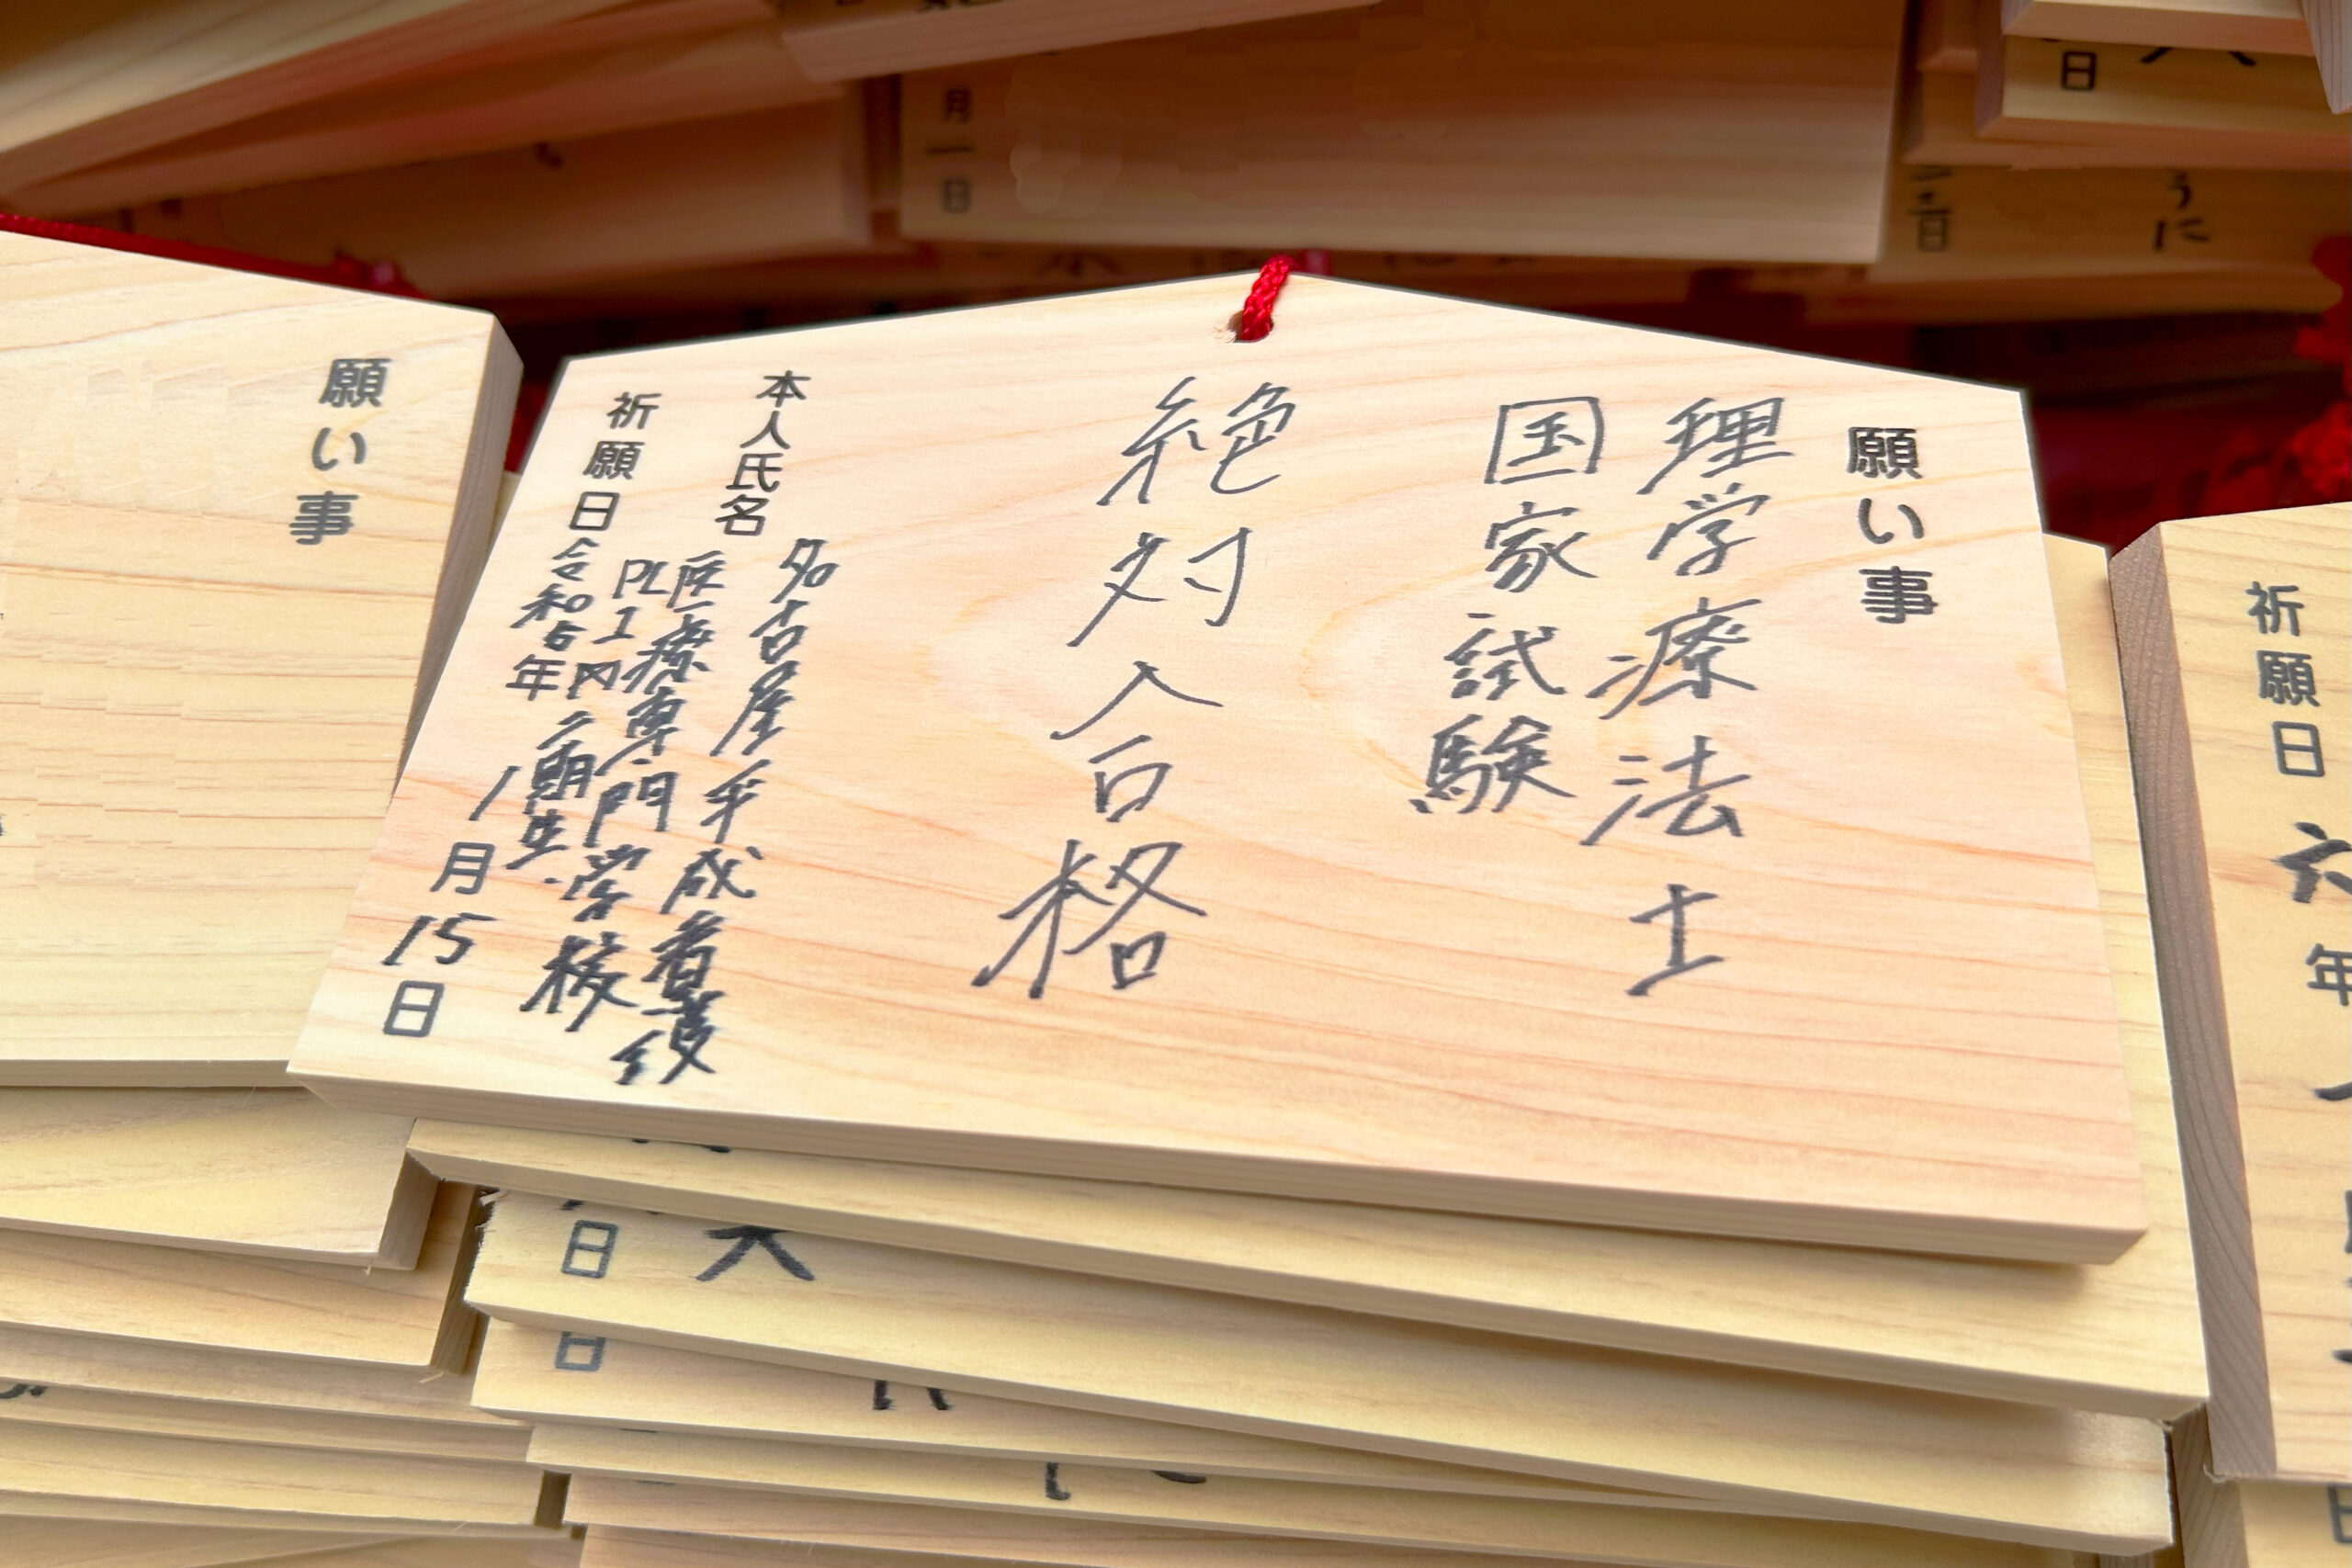 願い事
理学療法士
国家試験
絶対合格
本人氏名 名古屋平成看護
医療専門学校
二期生
祈願日 令和6年 1月15日
願い事
祈願日 六年
月一日
日
日
うに
日
日